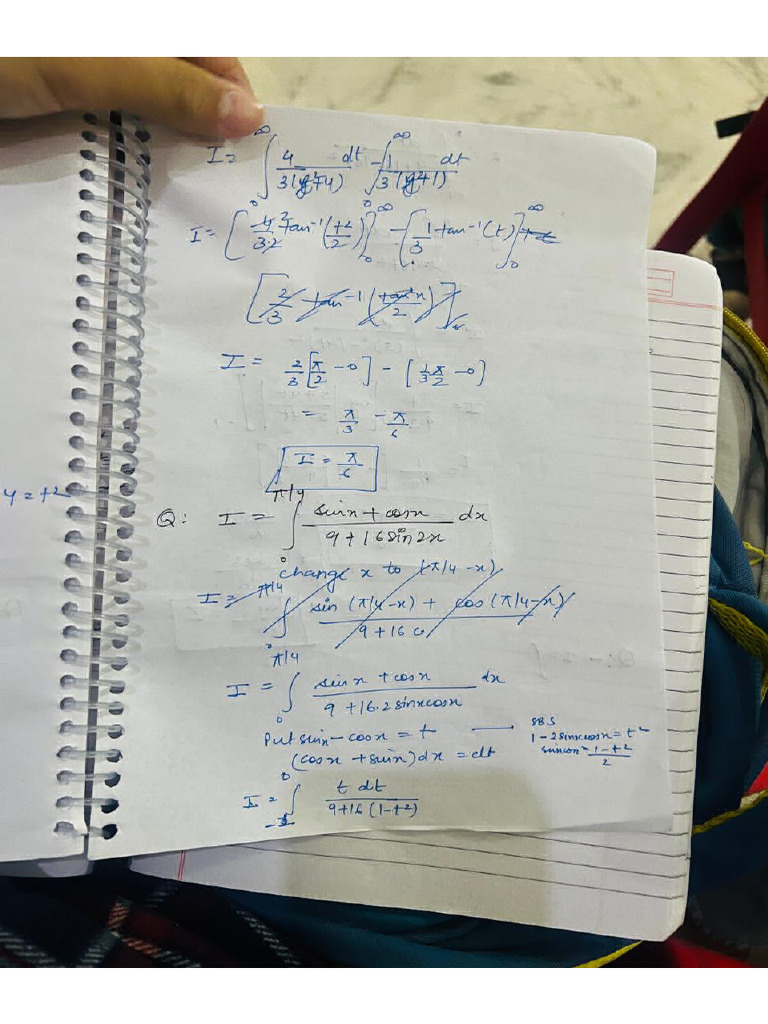 I = ∫₀^∞ 4/3(y²+4) dt - ∫₀^∞ 1/3(y²+1) dt
I = [4/3·2 2 tan⁻¹(t2/2)]₀^∞ - [1/3 tan⁻¹(t)]₀^∞
[2/3 tan⁻¹(tan²x/2)]
I = 2/3[π/2 - 0] - [1/3 π/2 - 0]
= π/3 - π/6
I = π/6
y = t2
Q: I = ∫₀^π/4 sinx + cosx/9 + 16 sin2x dx
change x to (π/4 - x)
I = ∫₀^π/4 sin(π/4 - x) + cos(π/4 - x)/9 + 16 c
I = ∫₀^π/4 sinx + cosx/9 + 16.2 sinxcosx dx
Put sinx - cosx = t → SBS
1 - 2sinxcosx = t²
(cosx + sinx)dx = dt
sinxcosx = 1 - t²/2
I = ∫₋₁^0 t dt/9 + 16(1 - t²)